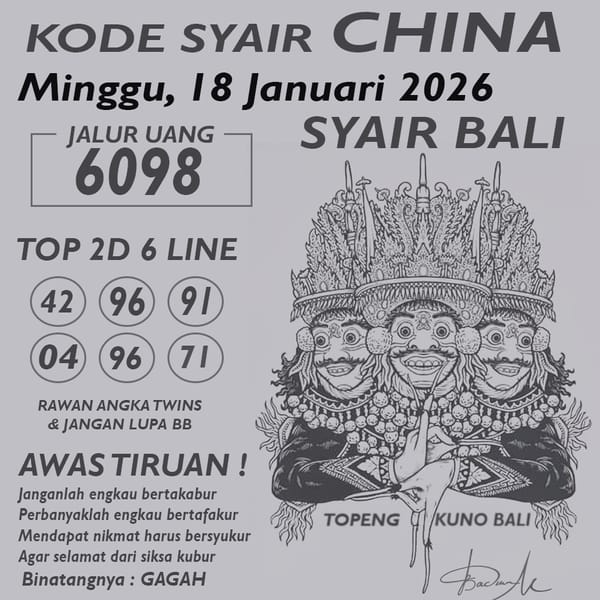 KODE SYAIR CHINA
Minggu, 18 Januari 2026
JALUR UANG
6098
SYAIR BALI
TOP 2D 6 LINE
42 96 91
04 96 71
RAWAN ANGKA TWINS
& JANGAN LUPA BB
AWAS TIRUAN !
Janganlah engkau bertakabur
Perbanyaklah engkau bertafakur
Mendapat nikmat harus bersyukur
Agar selamat dari siksa kubur
Binatangnya : GAGAH
TOPENG KUNO BALI